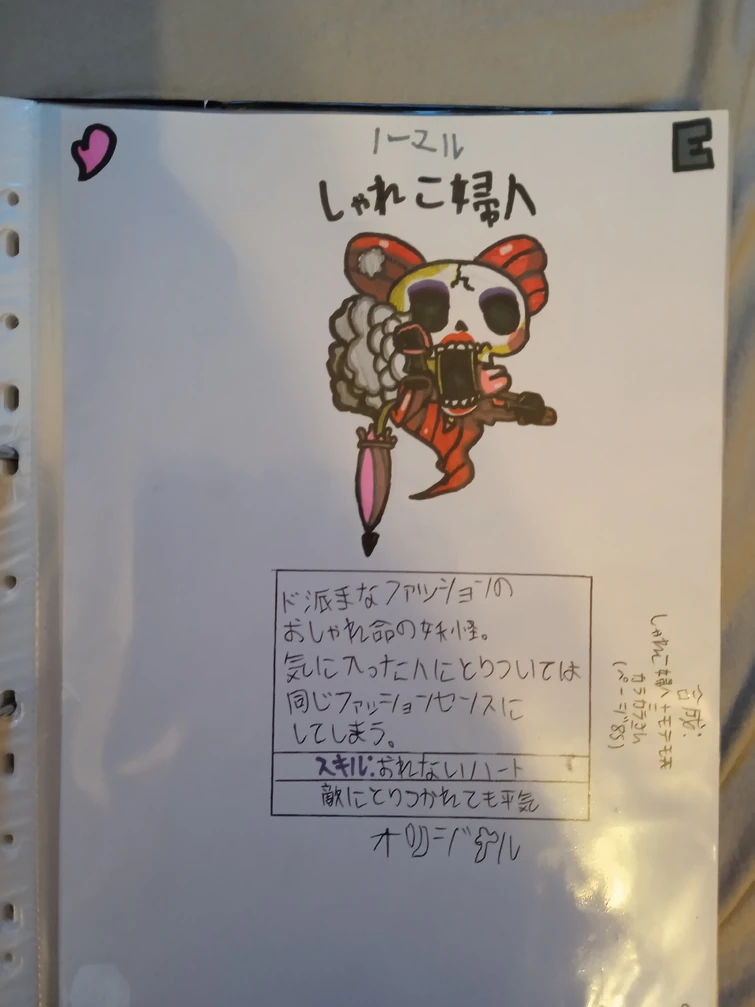 E
ノーマル
しゃれこ婦人
ド派手なファッションの
おしゃれ命の妖怪。
気に入った人にとりついては
同じファッションセンスに
してしまう。
スキル:おれないハート
敵にとりつかれても平気
オリジナル
合成:
しゃれこ婦人+モテモ系
=
カラカラさん
(ページ85)